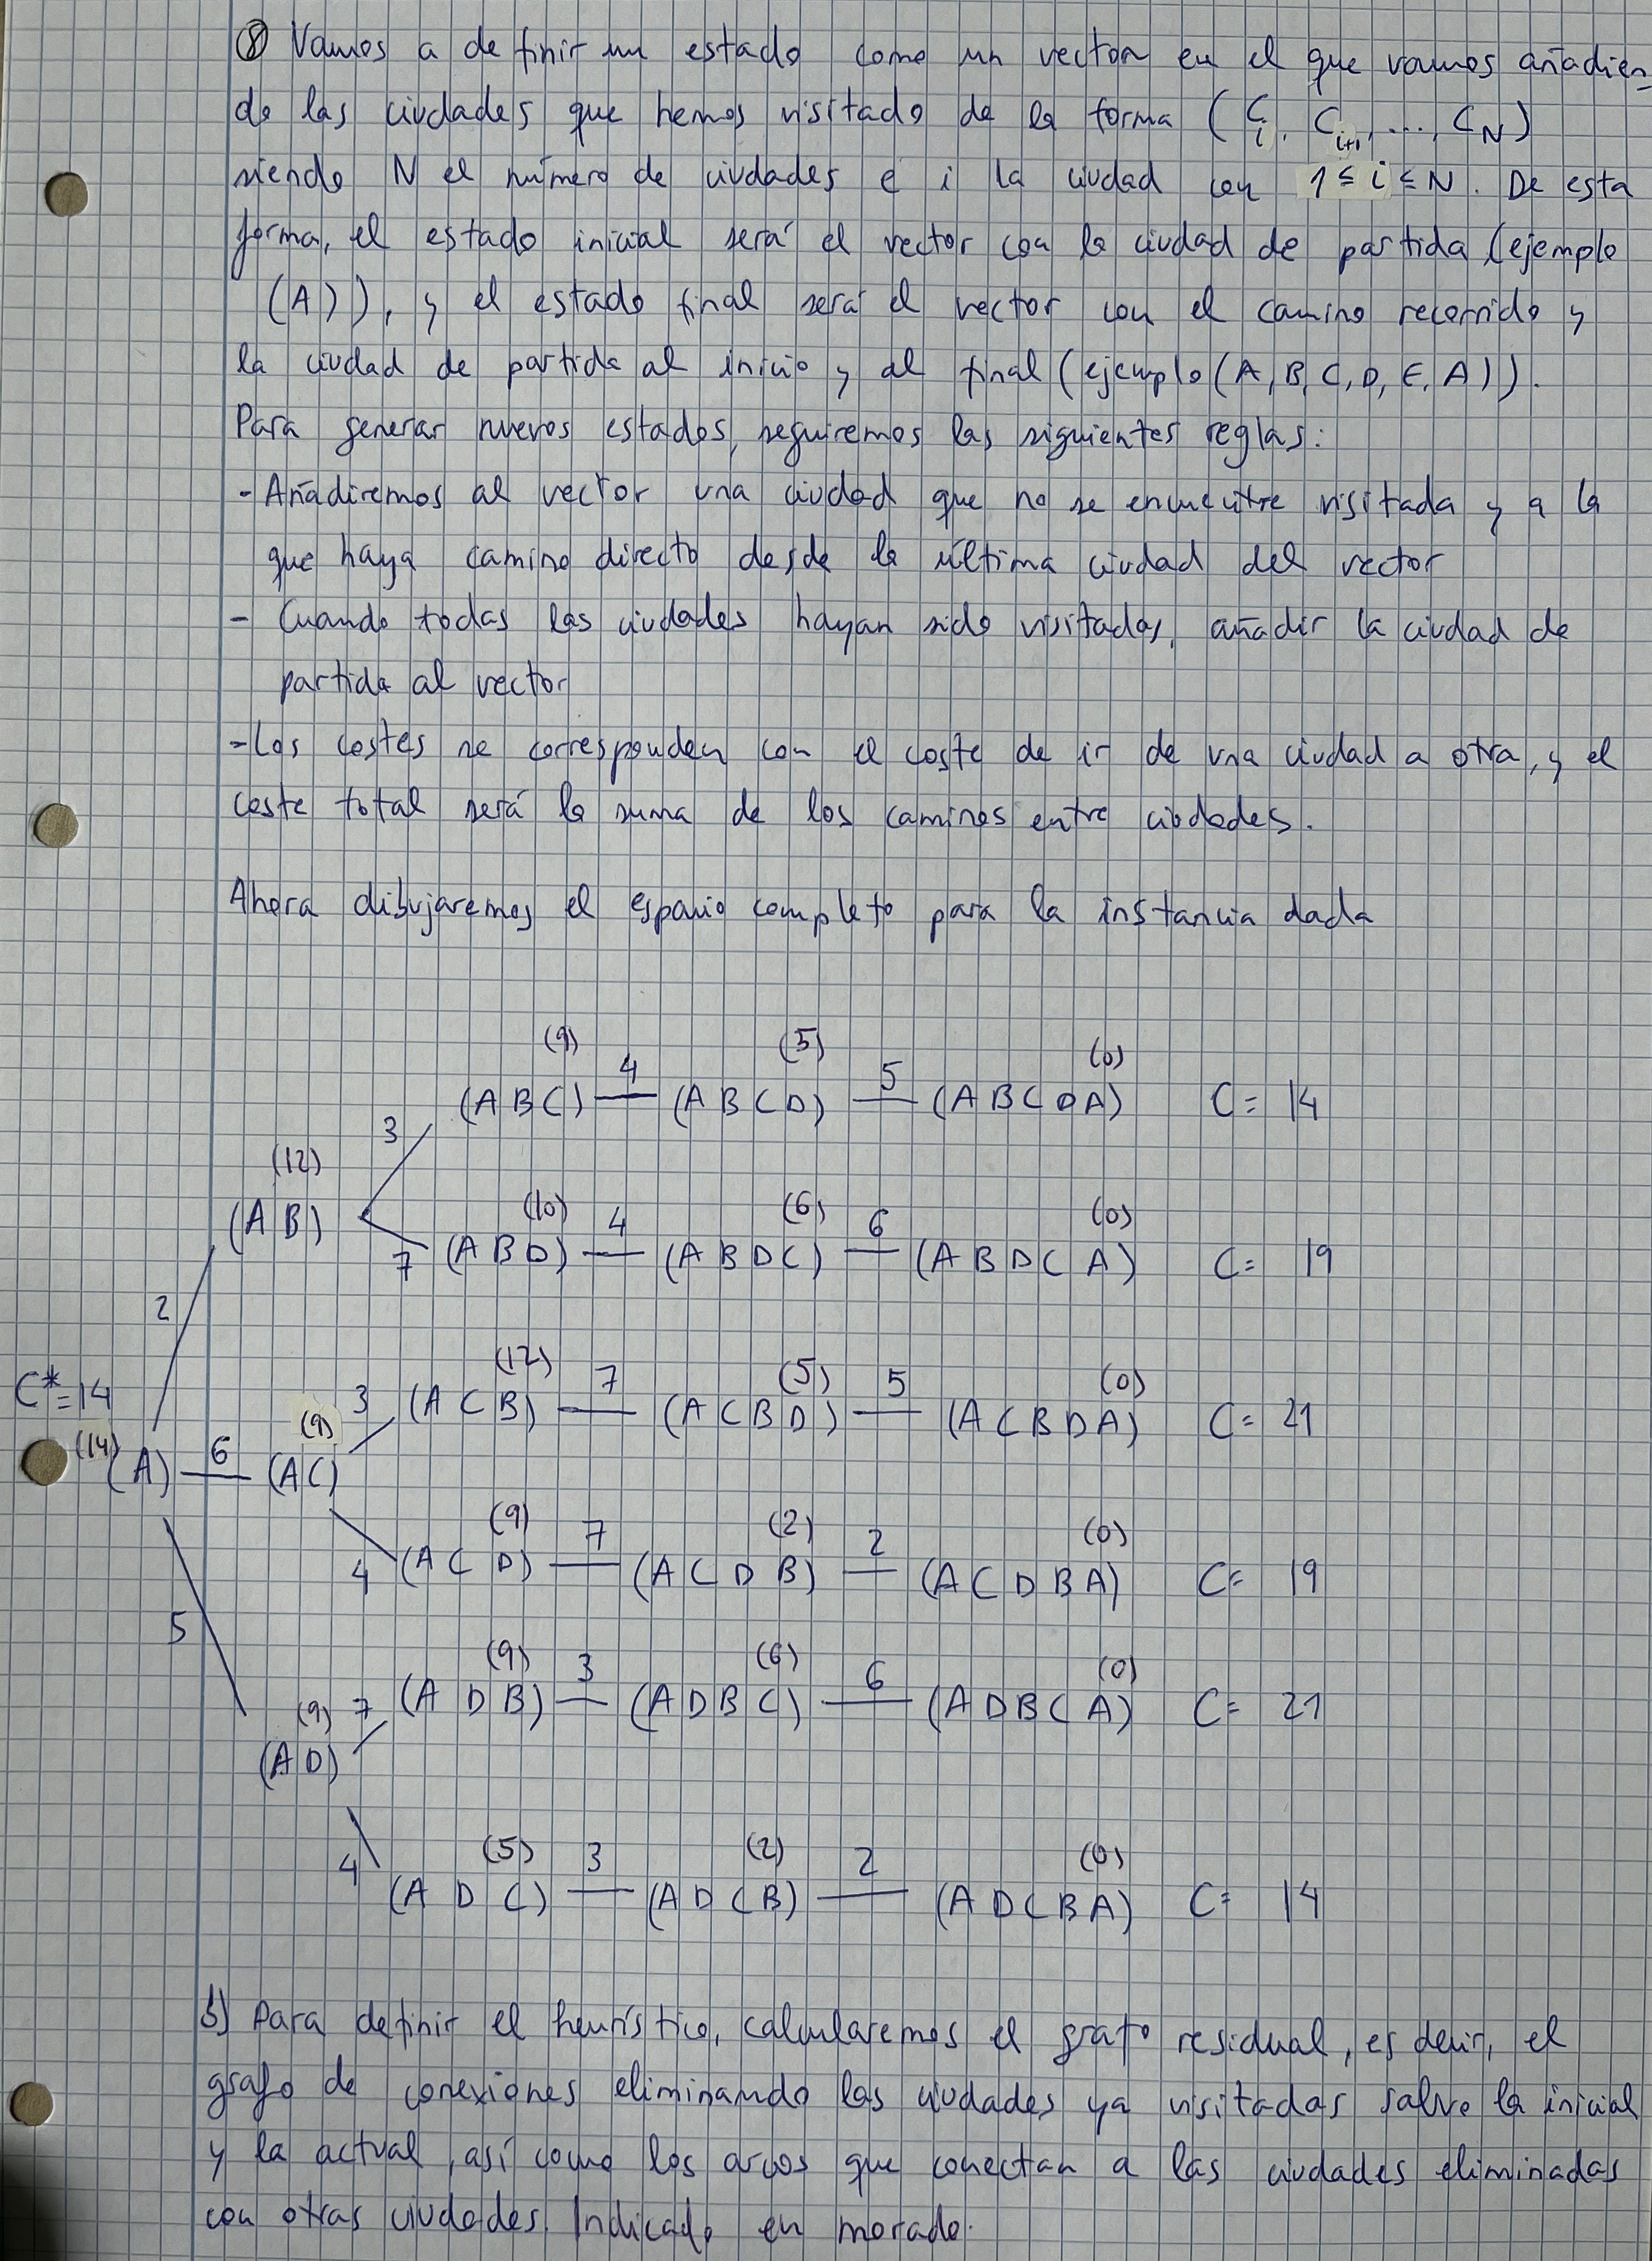 ⑧ Vamos a definir un estado como un vector en el que vamos añadien-
do las ciudades que hemos visitado de la forma (C_i, C_i+1, ..., C_N)
siendo N el número de ciudades e i la ciudad con 1 ≤ i ≤ N. De esta
forma, el estado inicial será el vector con la ciudad de partida (ejemplo
(A)), y el estado final será el vector con el camino recorrido y
la ciudad de partida al inicio y al final (ejemplo (A, B, C, D, E, A)).
Para generar nuevos estados, seguiremos las siguientes reglas:
- Añadiremos al vector una ciudad que no se encuentre visitada y a la
que haya camino directo desde la última ciudad del vector
- Cuando todas las ciudades hayan sido visitadas, añadir la ciudad de
partida al vector
- Los costes se corresponden con el coste de ir de una ciudad a otra, y el
coste total será la suma de los caminos entre ciudades.
Ahora dibujaremos el espacio completo para la instancia dada
(9) (5) (0)
3 (ABC) 4 (ABCD) 5 (ABCDA) C= 14
(12)
(AB)
(10) (6) (0)
7 (ABD) 4 (ABDC) 6 (ABDCA) C= 19
2
(12) (5) (0)
3 (ACB) 7 (ACBD) 5 (ACBDA) C= 21
C*=14
(14) (A) 6 (9) (AC)
(9) (2) (0)
4 (ACD) 7 (ACDB) 2 (ACDBA) C= 19
5
(9) (6) (0)
7 (ADB) 3 (ADBC) 6 (ADBCA) C= 21
(9)
(AD)
(5) (2) (0)
4 (ADC) 3 (ADCB) 2 (ADCBA) C= 14
b) Para definir el heurístico, calcularemos el grafo residual, es decir, el
grafo de conexiones eliminando las ciudades ya visitadas salvo la inicial
y la actual, así como los arcos que conectan a las ciudades eliminadas
con otras ciudades. Indicado en morado.